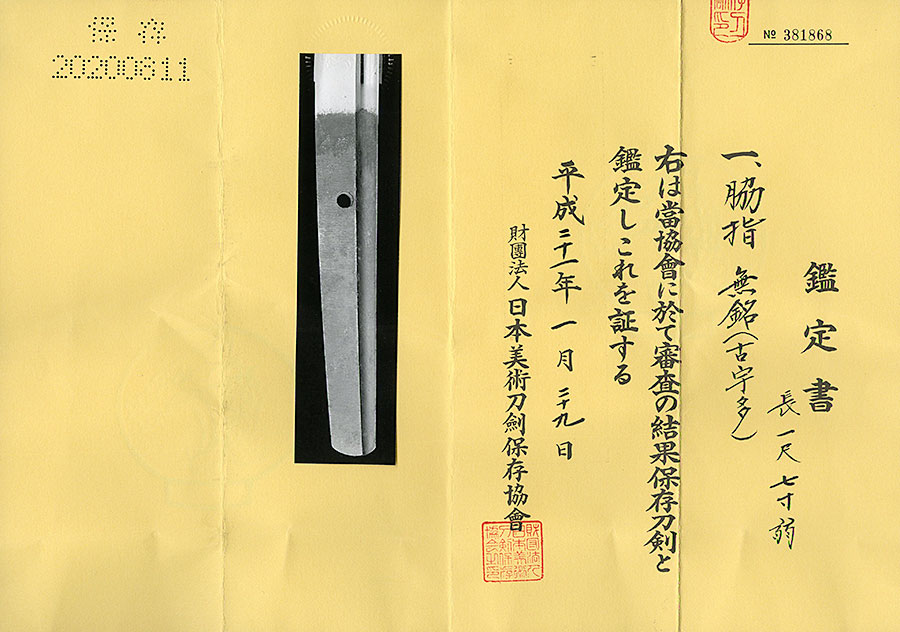 № 381868
鑑定書
一、脇指 無銘(古宇多)
長一尺七寸弱
右は當協會に於て審査の結果保存刀剣と
鑑定しこれを証する
平成二十一年一月二十九日
財團法人 日本美術刀劍保存協會
保存
20200611